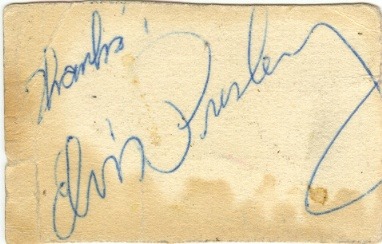 Thanks!
Elvis Presley